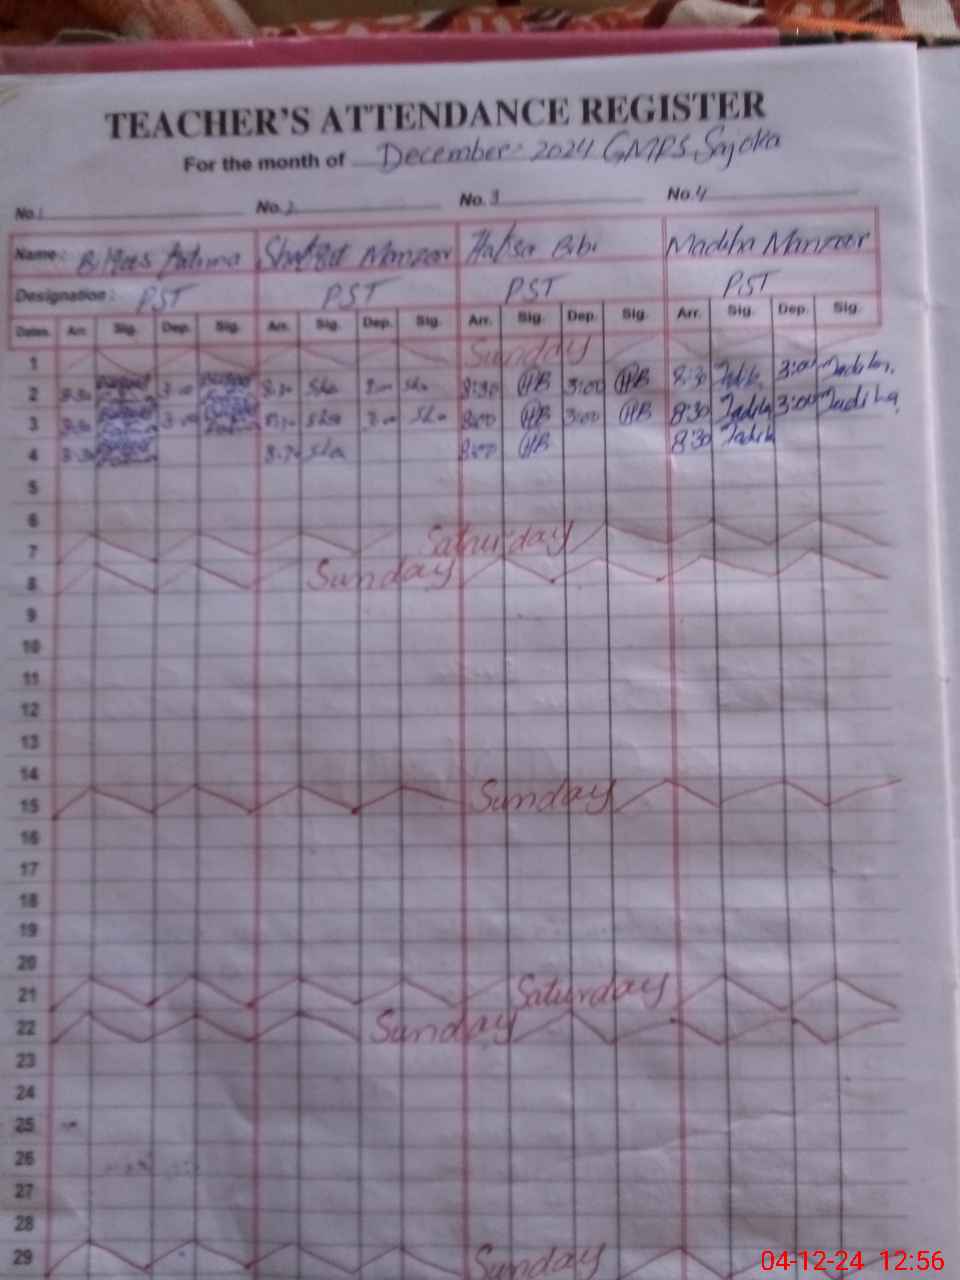 TEACHER'S ATTENDANCE REGISTER
For the month of December 2024 GMPS, Sajoka
No.1 No.2 No.3 No.4
Name: Fatima Manzoor Hafsa Bibi Madiha Manzoor
Designation: PST PST PST PST
Dates. Arr. Sig. Dep. Sig. Arr. Sig. Dep. Sig. Arr. Sig. Dep. Sig. Arr. Sig. Dep. Sig.
1 Sunday
2 8:30 3:00 8:30 Sha 3:00 Sha 8:30 HB 3:00 HB 8:30 3:00 Madiha
3 8:30 3:00 Sha 3:00 Sha 8:00 HB 3:00 HB 8:30 Madiha 3:00 Madiha
4 8:30 8:30 Sha 8:00 HB 8:30 Madiha
5
6
7 Saturday
8 Sunday
9
10
11
12
13
14
15 Sunday
16
17
18
19
20
21 Saturday
22 Sunday
23
24
25
26
27
28
29 Sunday
04-12-24 12:56